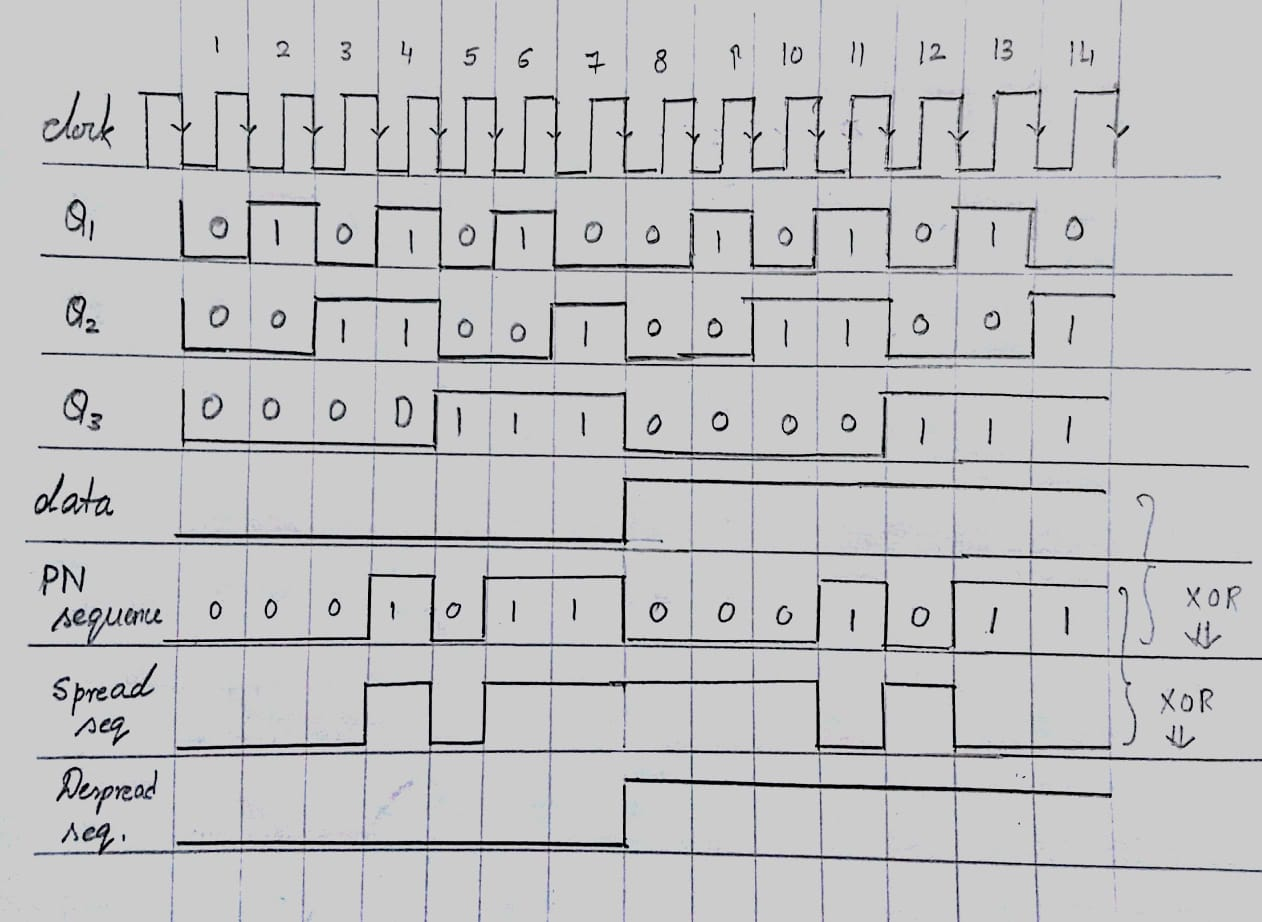 1 2 3 4 5 6 7 8 9 10 11 12 13 14
clock
Q1 0 1 0 1 0 1 0 0 1 0 1 0 1 0
Q2 0 0 1 1 0 0 1 0 0 1 1 0 0 1
Q3 0 0 0 0 1 1 1 0 0 0 0 1 1 1
data
PN
sequence 0 0 0 1 0 1 1 0 0 0 1 0 1 1
XOR
Spread
seq
XOR
Despread
seq.